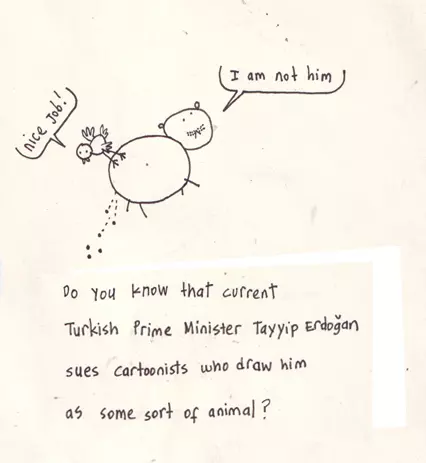 I am not him
nice job!
Do you know that current
Turkish Prime Minister Tayyip Erdoğan
sues cartoonists who draw him
as some sort of animal?